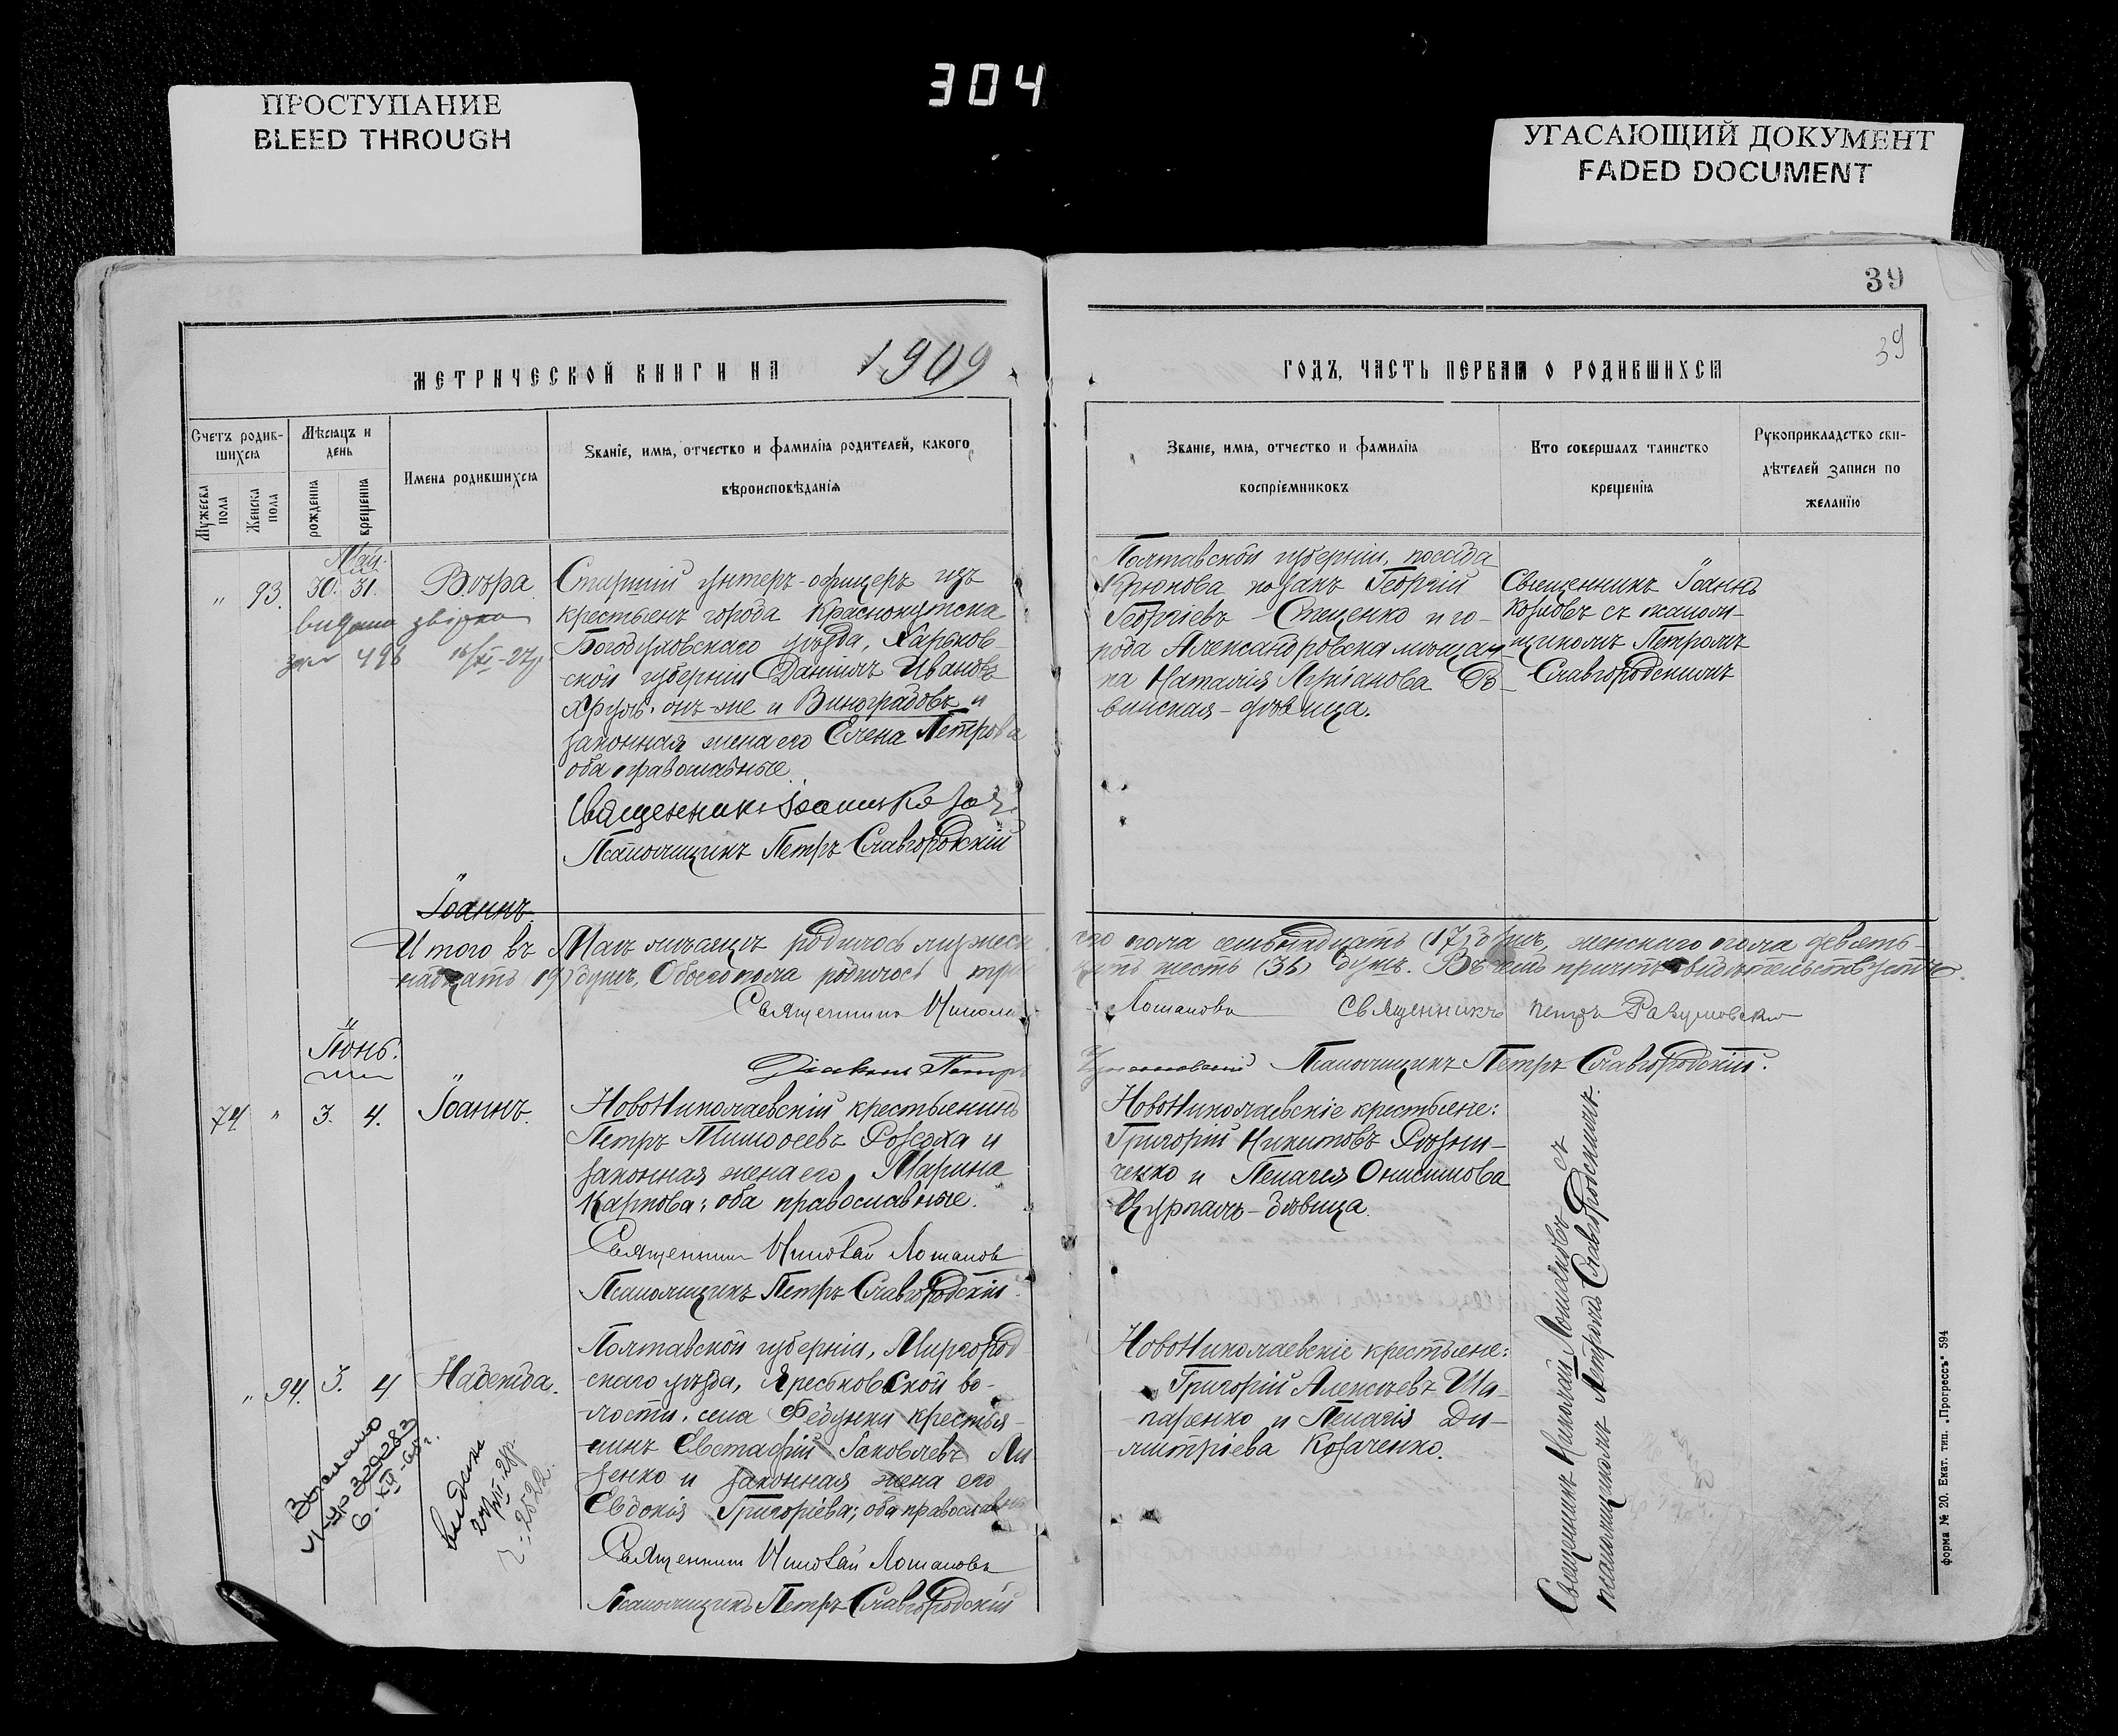 304
ПРОСТУПАНИЕ
BLEED THROUGH
УГАСАЮЩИЙ ДОКУМЕНТ
FADED DOCUMENT
39
39
МЕТРИЧЕСКОЙ КНИГИ НА 1909
ГОДЪ, ЧАСТЬ ПЕРВАЯ О РОДИВШИХСЯ
Счетъ родив-
шихся
Мужеска пола
Женска пола
Мѣсяцъ и
день
рожденія
крещенія
Имена родившихся
Званіе, имя, отчество и фамилія родителей, какого
вѣроисповѣданія
Званіе, имя, отчество и фамилія
воспріемниковъ
Кто совершалъ таинство
крещенія
Рукоприкладство сви-
дѣтелей записи по
желанію
Май.
" 93. 30. 31. Вѣра
496 16/XI-27р
Старшій унтеръ-офицеръ изъ
крестьянъ города Краснокутска
Богодуховскаго уѣзда, Харьков-
ской губерніи Даніилъ Ивановъ
онъ-же и Виноградовъ и
законная жена его Елена Петрова
оба православные.
Священникъ Іоаннъ Козловъ
Псаломщикъ Петръ Славгородскій
Полтавской губерніи, посада
Крюкова козакъ Георгій
Георгіевъ Стеценко и го-
рода Александровска мѣщан-
ка Наталія
винская-дѣвица.
Священникъ Іоаннъ
Козловъ съ псалом-
щикомъ Петромъ
Славгородскимъ
Іоаннъ.
Итого въ Маѣ мѣсяцѣ родилось мужеск
го пола семьнадцать (17) душъ, женскаго пола девять-
надцать (19) душъ, Обоего пола родилось три
цать шесть (36) душъ. Въ чемъ причтъ свидѣтельствуетъ.
Священникъ Никола
Лошаковъ Священникъ Петръ Разумовскій
Діаконъ Петръ
Псаломщикъ Петръ Славгородскій.
Іюнь.
74 " 3. 4. Іоаннъ.
НовоНиколаевскій крестьянинъ
Петръ Тимоѳеевъ и
законная жена его, Марина
Карпова; оба православные.
Священникъ Николай Лошаковъ
Псаломщикъ Петръ Славгородскій.
НовоНиколаевскіе крестьяне:
Григорій Никитовъ Рѣзни-
ченко и Пелагея Онисимова
Цурпалъ-дѣвица.
" 94. 3. 4. Надежда.
Выслано
6-XII-
Полтавской губерніи, Миргород-
скаго уѣзда, Яреськовской во-
лости, села Ѳедунки крестья-
нинъ Евстафій Іаковлевъ Ли-
зенко и законная жена его
Евдокія Григоріева; оба православные
Священникъ Николай Лошаковъ
Псаломщикъ Петръ Славгородскій
НовоНиколаевскіе крестьяне:
Григорій Алексѣевъ Ша-
паренко и Пелагія Ди-
митріева Козаченко.
Священникъ Николай Лошаковъ съ
псаломщикомъ Петромъ Славгородскимъ.
форма № 20. Екат. тип. „Прогрессъ" 594